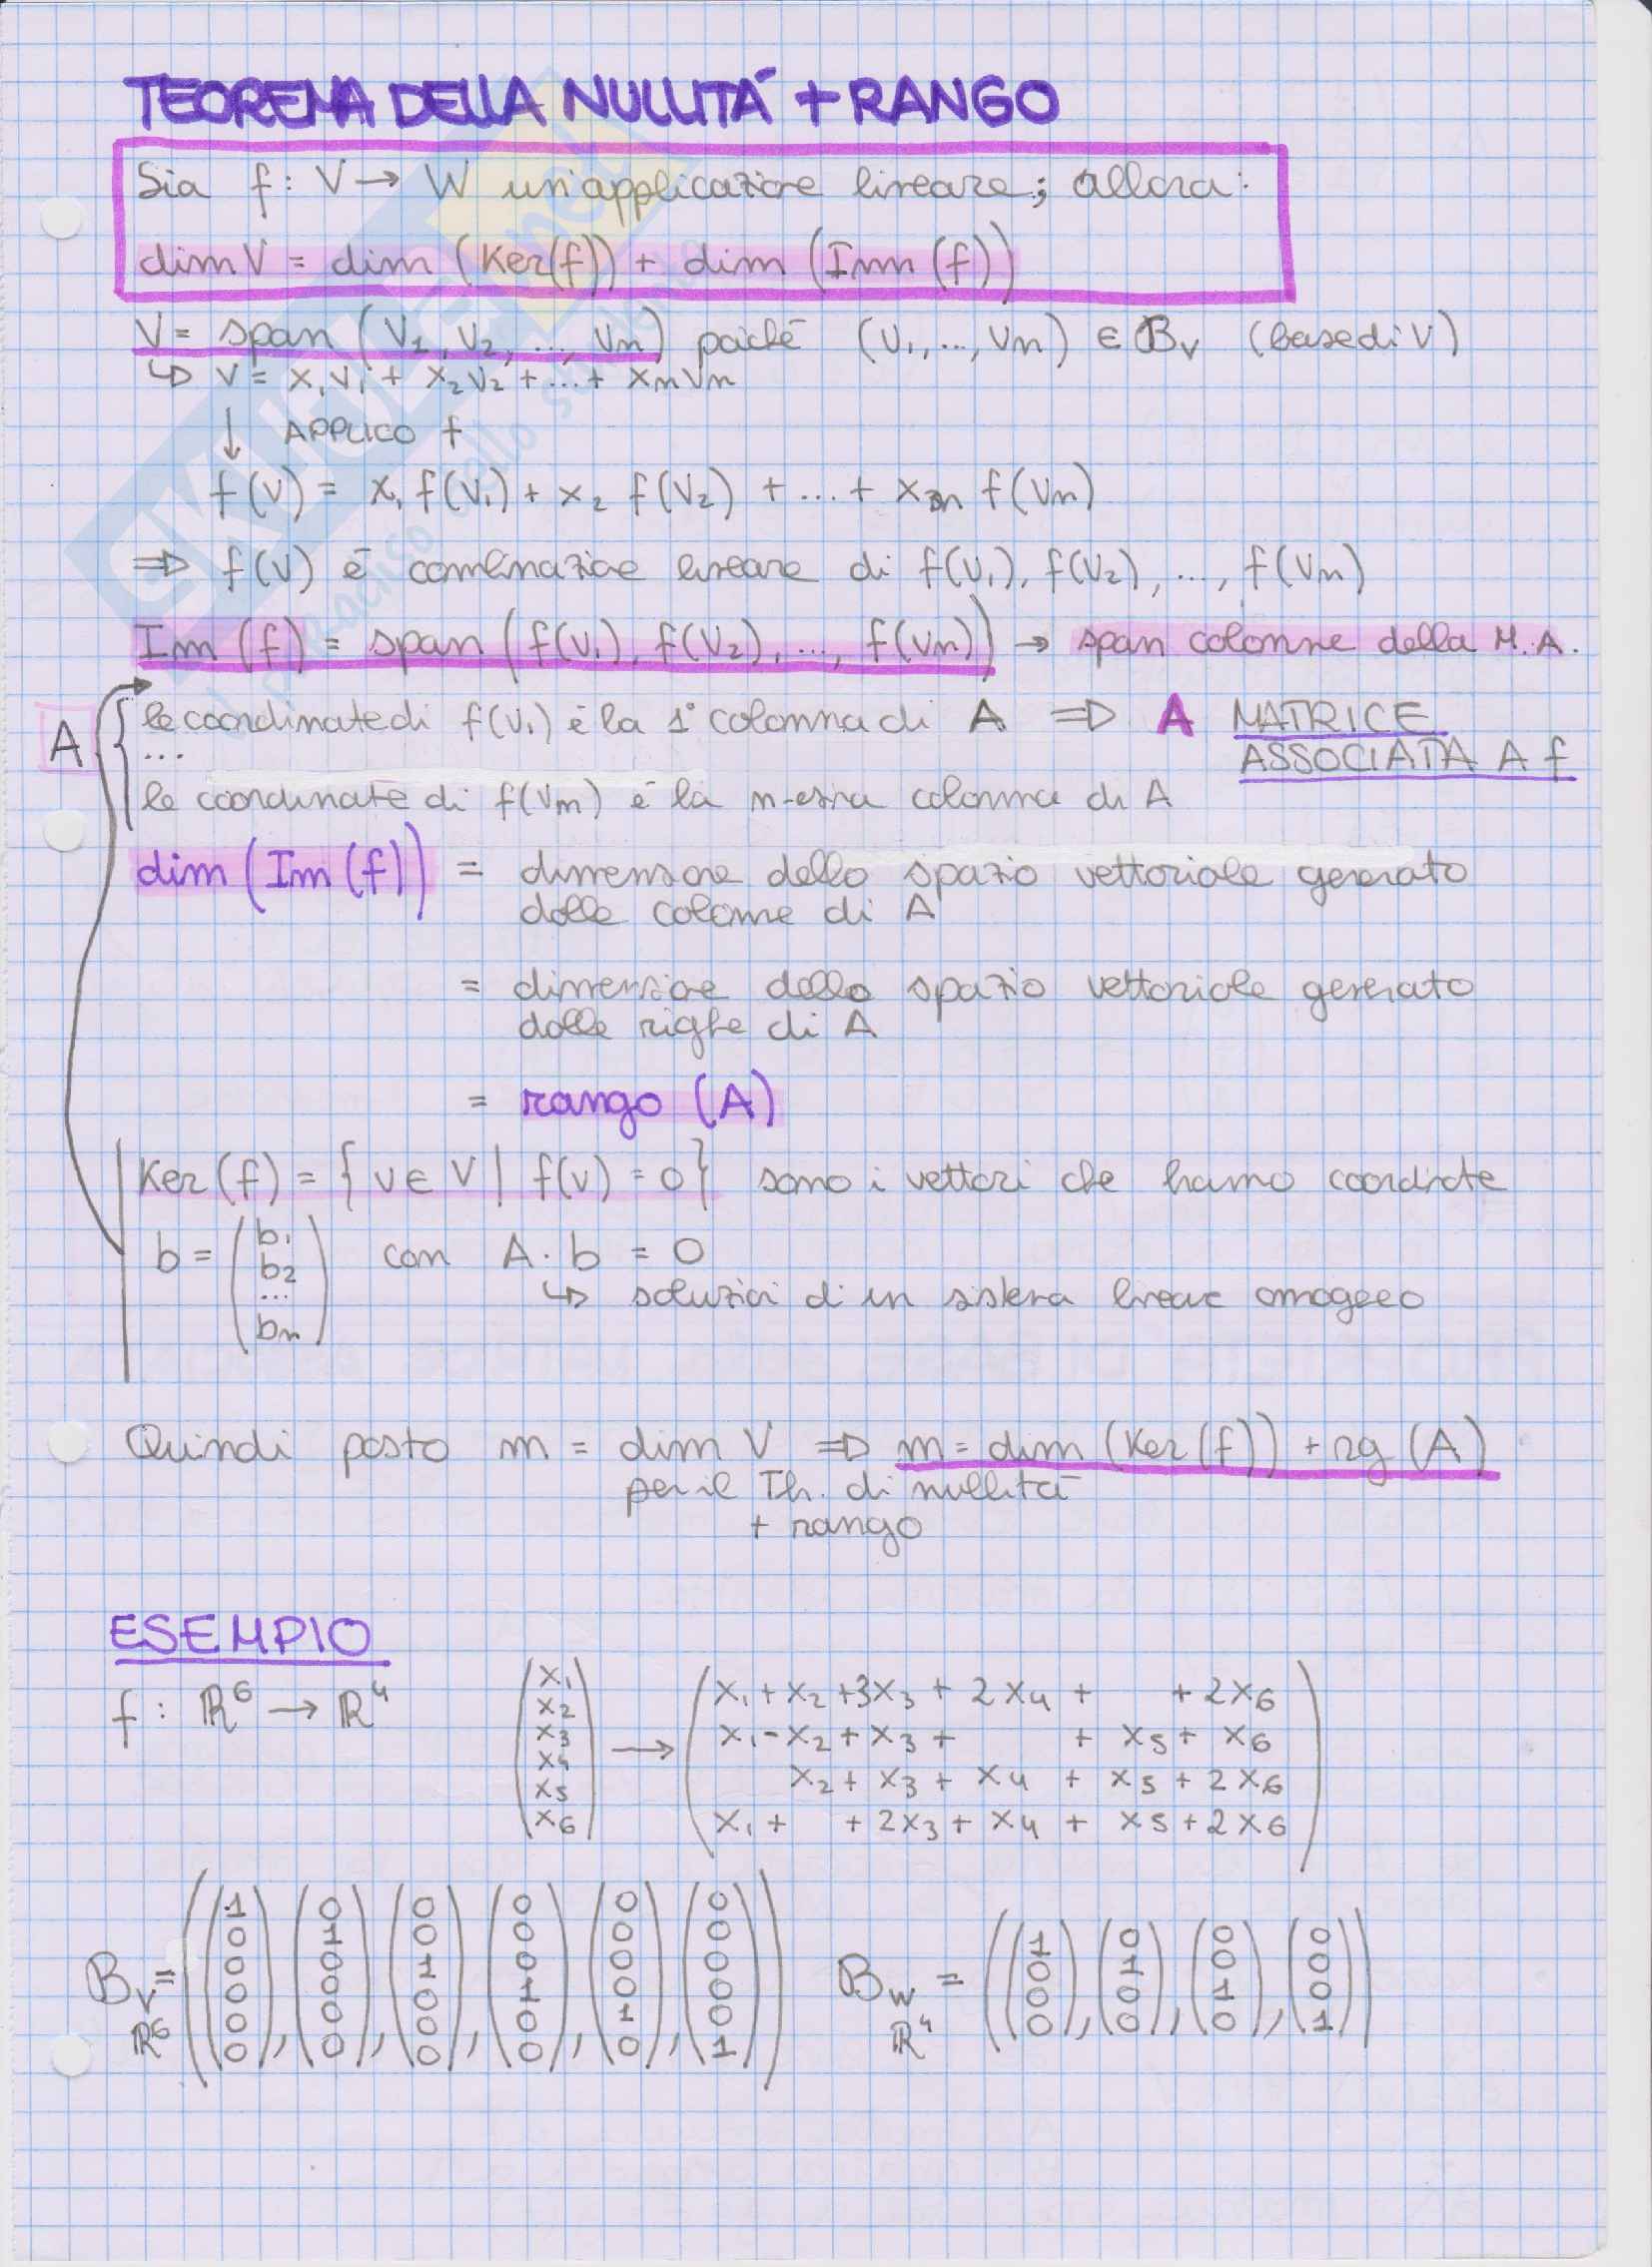 TEOREMA DELLA NULLITÀ + RANGO
Sia f: V → W un'applicazione lineare; allora:
dim V = dim (Ker(f)) + dim (Imm (f))
V = span (v₁, v₂, ..., vn) poichè (v₁, ..., vn) ∈ Bv (base di V)
↳ v = x₁v₁ + x₂v₂ + ... + xnvn
↓ APPLICO f
f(v) = x₁ f(v₁) + x₂ f(v₂) + ... + xn f(vn)
⇒ f(v) è combinazione lineare di f(v₁), f(v₂), ..., f(vn)
Im (f) = span (f(v₁), f(v₂), ..., f(vn)) → span colonne della M.A.
le coordinate di f(v₁) è la 1° colonna di A ⇒ A MATRICE
A { ... ASSOCIATA A f
le coordinate di f(vn) è la n-esima colonna di A
dim (Im (f)) = dimensione dello spazio vettoriale generato
dalle colonne di A
= dimensione dello spazio vettoriale generato
dalle righe di A
= rango (A)
Ker(f) = { v ∈ V | f(v) = 0 } sono i vettori che hanno coordinate
b = (b₁ b₂ ... bn) con A · b = 0
↳ soluzioni di un sistema lineare omogeneo
Quindi posto n = dim V ⇒ n = dim (Ker(f)) + rg (A)
per il Th. di nullità
+ rango
ESEMPIO
f : ℝ⁶ → ℝ⁴ (x₁ x₂ x₃ x₄ x₅ x₆) → (x₁ + x₂ + 3x₃ + 2x₄ + + 2x₆
x₁ - x₂ + x₃ + + x₅ + x₆
x₂ + x₃ + x₄ + x₅ + 2x₆
x₁ + + 2x₃ + x₄ + x₅ + 2x₆)
Bv = ((1 0 0 0 0 0), (0 1 0 0 0 0), (0 0 1 0 0 0), (0 0 0 1 0 0), (0 0 0 0 1 0), (0 0 0 0 0 1)) Bw = ((1 0 0 0), (0 1 0 0), (0 0 1 0), (0 0 0 1))
ℝ⁶ ℝ⁴